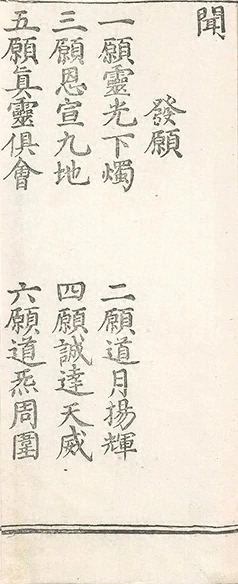 聞
發願
一願靈光下燭　二願道月揚輝
三願恩宣九地　四願誠達天威
五願真靈俱會　六願道炁周圍